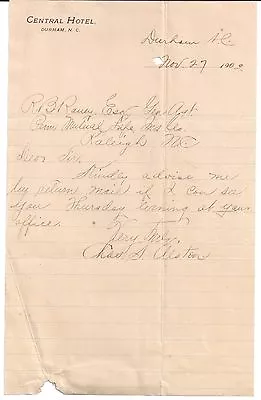 CENTRAL HOTEL.
DURHAM, N. C.
Durham N.C.
Nov. 27 190
R. B. Raney, Esq. Gen Agt.
Penn Mutual Life Ins Co.
Raleigh NC
Dear Sir,
Kindly advise me
by return mail if I can see
you Thursday evening at your
office.
Very Truly,
Chas. A. Alston